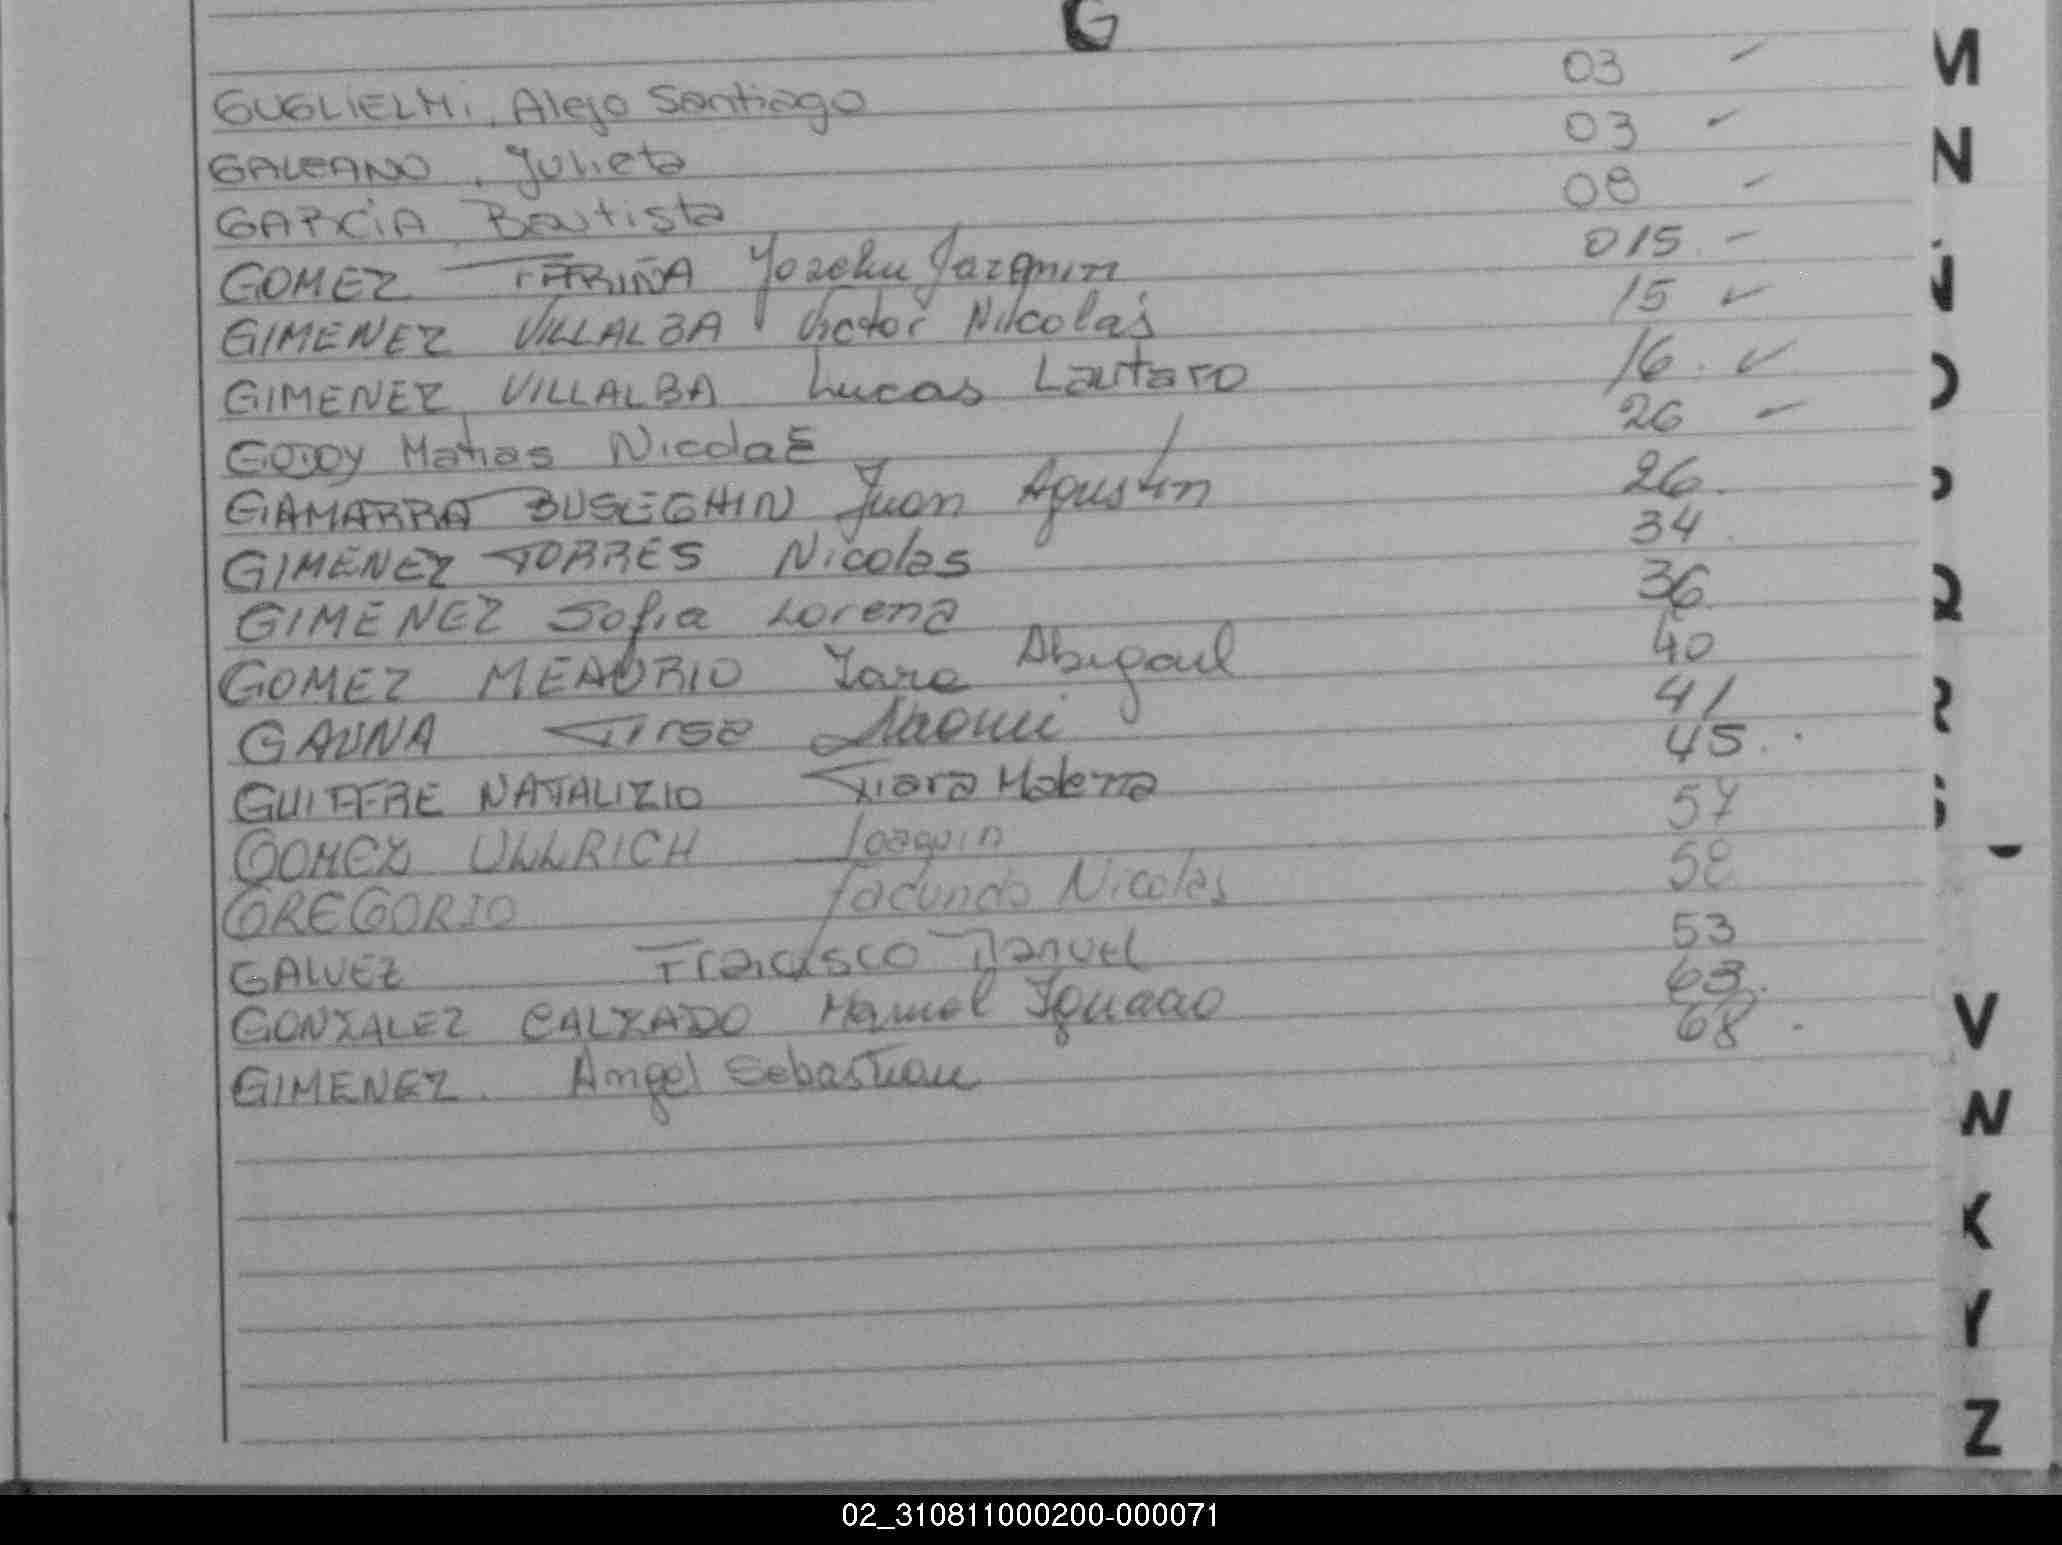 G
GUGLIELMi, Alejo Santiago 03
GALEANO, Julieta 03
GARCÍA, Bautista 08
GOMEZ FARIÑA Jazmin 015
GIMENEZ VILLALBA Victor Nicolás 15
GIMENEZ VILLALBA Lucas Lautaro 16
GODOY Matias Nicolas 26
GAMARRA BUSEGHIN Juan Agustín 26
GIMENEZ TORRES Nicolas 34
GIMENEZ Sofia Lorena 36
GOMEZ MEAURIO Iara Abigail 40
GAUNA Tirsa Naomi 41
GUIFFRE NATALIZIO Tiara Malena 45
GOMEZ ULLRICH Joaquin 57
GREGORIO Facundo Nicolas 58
GALVEZ Francisco Manuel 53
GONZALEZ CALZADO Manuel Ignacio 63
GIMENEZ Angel Sebastian 68
M
N
O
P
Q
R
S
V
W
X
Y
Z
02_310811000200-000071